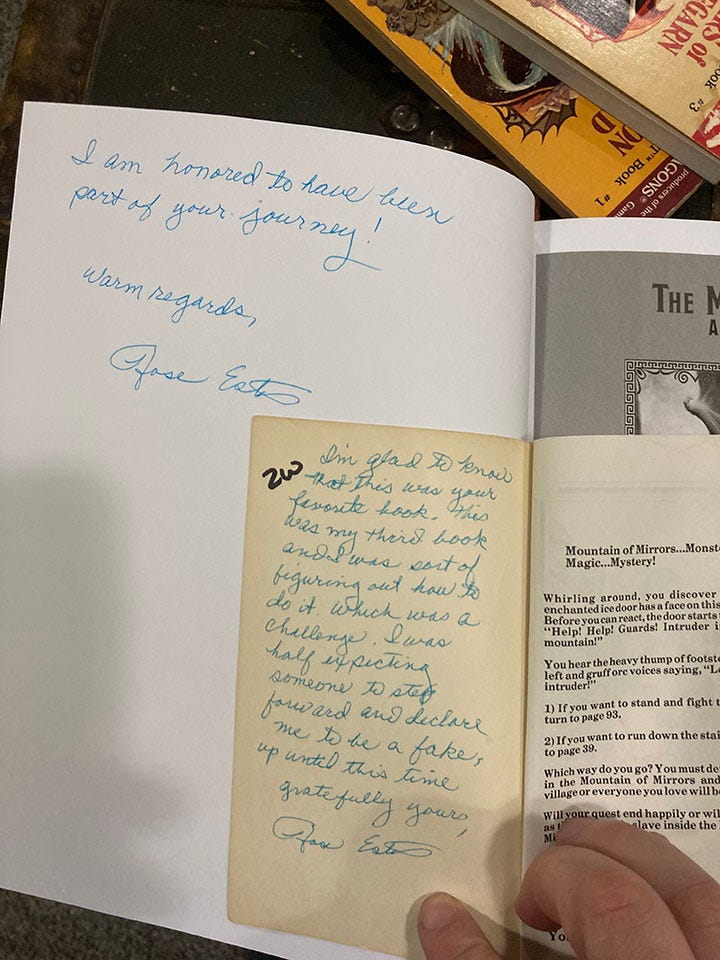 RS of
GGARN
ook #3
ON
D
T™ Book #1
AGONS®
producers of the
Gam
I am honored to have been
part of your journey!
Warm regards,
Rose Estes
THE M
A
2W
I'm glad to know
that this was your
favorite book. This
was my third book
and I was sort of
figuring out how to
do it. Which was a
challenge. I was
half expecting
someone to step
forward and declare
me to be a fake,
up until this time
gratefully yours,
Rose Estes
Mountain of Mirrors...Monst
Magic...Mystery!
Whirling around, you discover
enchanted ice door has a face on this
Before you can react, the door starts
"Help! Help! Guards! Intruder i
mountain!"
You hear the heavy thump of footste
left and gruff orc voices saying, "L
intruder!"
1) If you want to stand and fight t
turn to page 93.
2) If you want to run down the stai
to page 39.
Which way do you go? You must de
in the Mountain of Mirrors and
village or everyone you love will b
Will your quest end happily or wil
as slave inside the
Mi
Yo